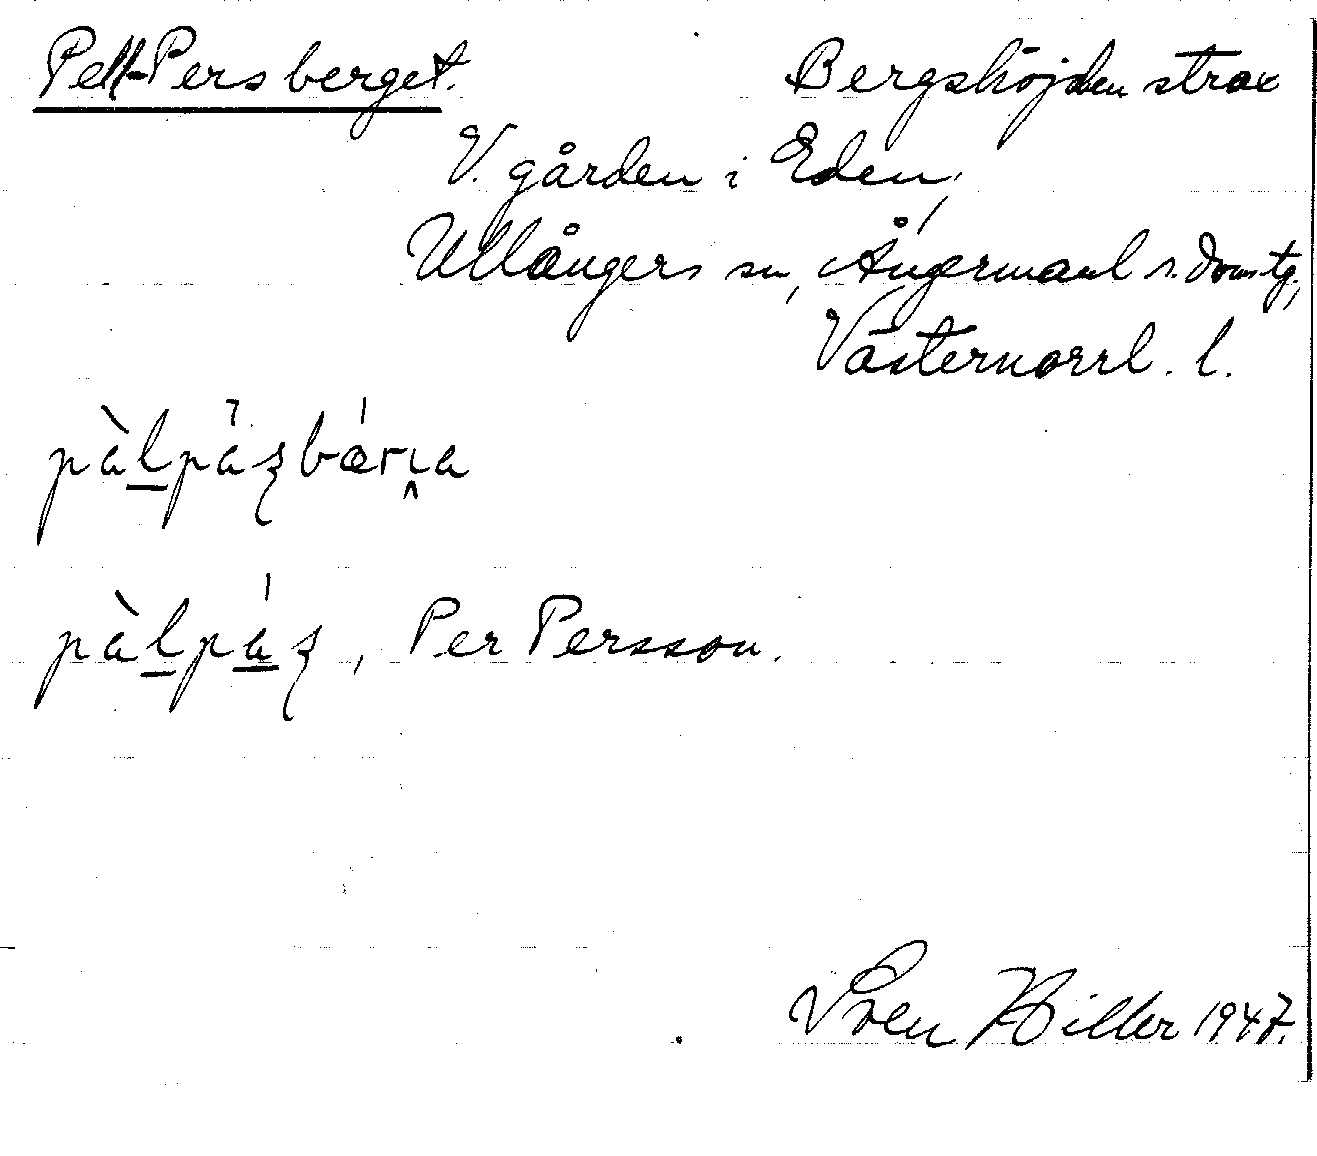 Pell-Pers berget. Bergshöjden strax
V. gården i Eden,
Ullångers sn, Ångermanl s. domstg,
Västernorrl. l.
pàlpāʂbárɩa
pàlpáʂ, Per Persson.
Sven Hiller 1947.